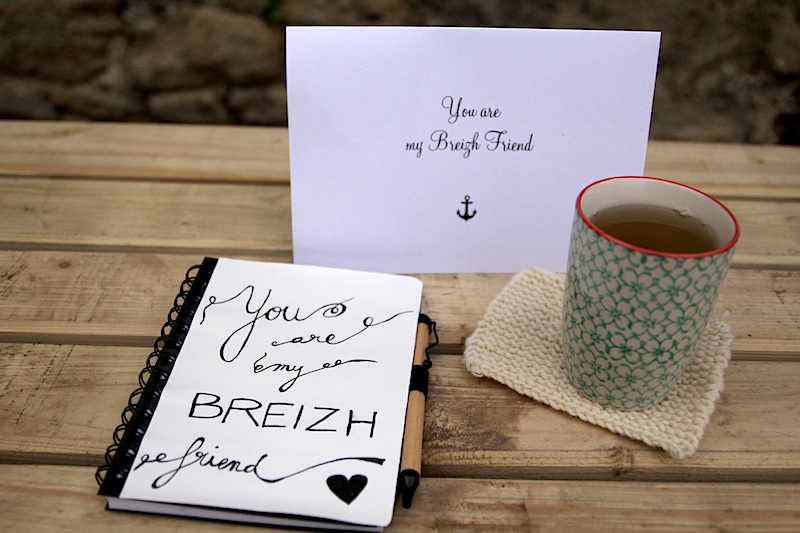 You are
my Breizh Friend
You
are
my
BREIZH
friend